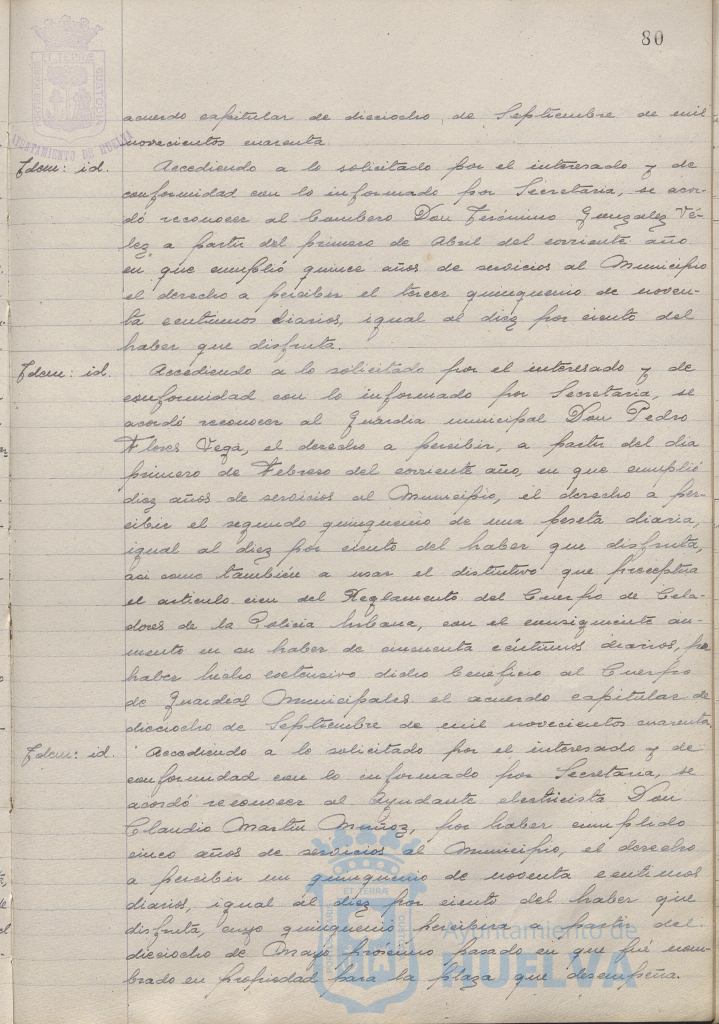 80
acuerdo capitular de dieciocho de Septiembre de mil
novecientos cuarenta.
AYUNTAMIENTO DE HUELVA
Idem: id. Accediendo a lo solicitado por el interesado y de
conformidad con lo informado por Secretaria, se acor-
dó reconocer al Bombero Don Jerónimo Gonzalez Vé-
lez a partir del primero de Abril del corriente año
en que cumplió quince años de servicios al Municipio
el derecho a percibir el tercer quinquenio de noven-
ta centimos diarios, igual al diez por ciento del
haber que disfruta.
Idem: id. Accediendo a lo solicitado por el interesado y de
conformidad con lo informado por Secretaria, se
acordó reconocer al Guardia municipal Don Pedro
Flores Vega, el derecho a percibir, a partir del dia
primero de Febrero del corriente año, en que cumplió
diez años de servicios al Municipio, el derecho a per-
cibir el segundo quinquenio de una peseta diaria,
igual al diez por ciento del haber que disfruta,
asi como también a usar el distintivo que preceptua
el articulo cien del Reglamento del Cuerpo de Cela-
dores de la Policia Urbana, con el consiguiente au-
mento en su haber de cincuenta céntimos diarios, por
haber hecho extensivo dicho beneficio al Cuerpo
de Guardias Municipales el acuerdo capitular de
dieciocho de Septiembre de mil novecientos cuarenta.
Idem: id. Accediendo a lo solicitado por el interesado y de
conformidad con lo informado por Secretaria, se
acordó reconocer al Ayudante electricista Don
Claudio Martin Muñoz, por haber cumplido
cinco años de servicios al Municipio, el derecho
a percibir un quinquenio de noventa centimos
diarios, igual al diez por ciento del haber que
disfruta, cuyo quinquenio percibira a partir del
dieciocho de Mayo próximo pasado en que fué nom-
brado en propiedad para la plaza que desempeña.
Ayuntamiento de
HUELVA